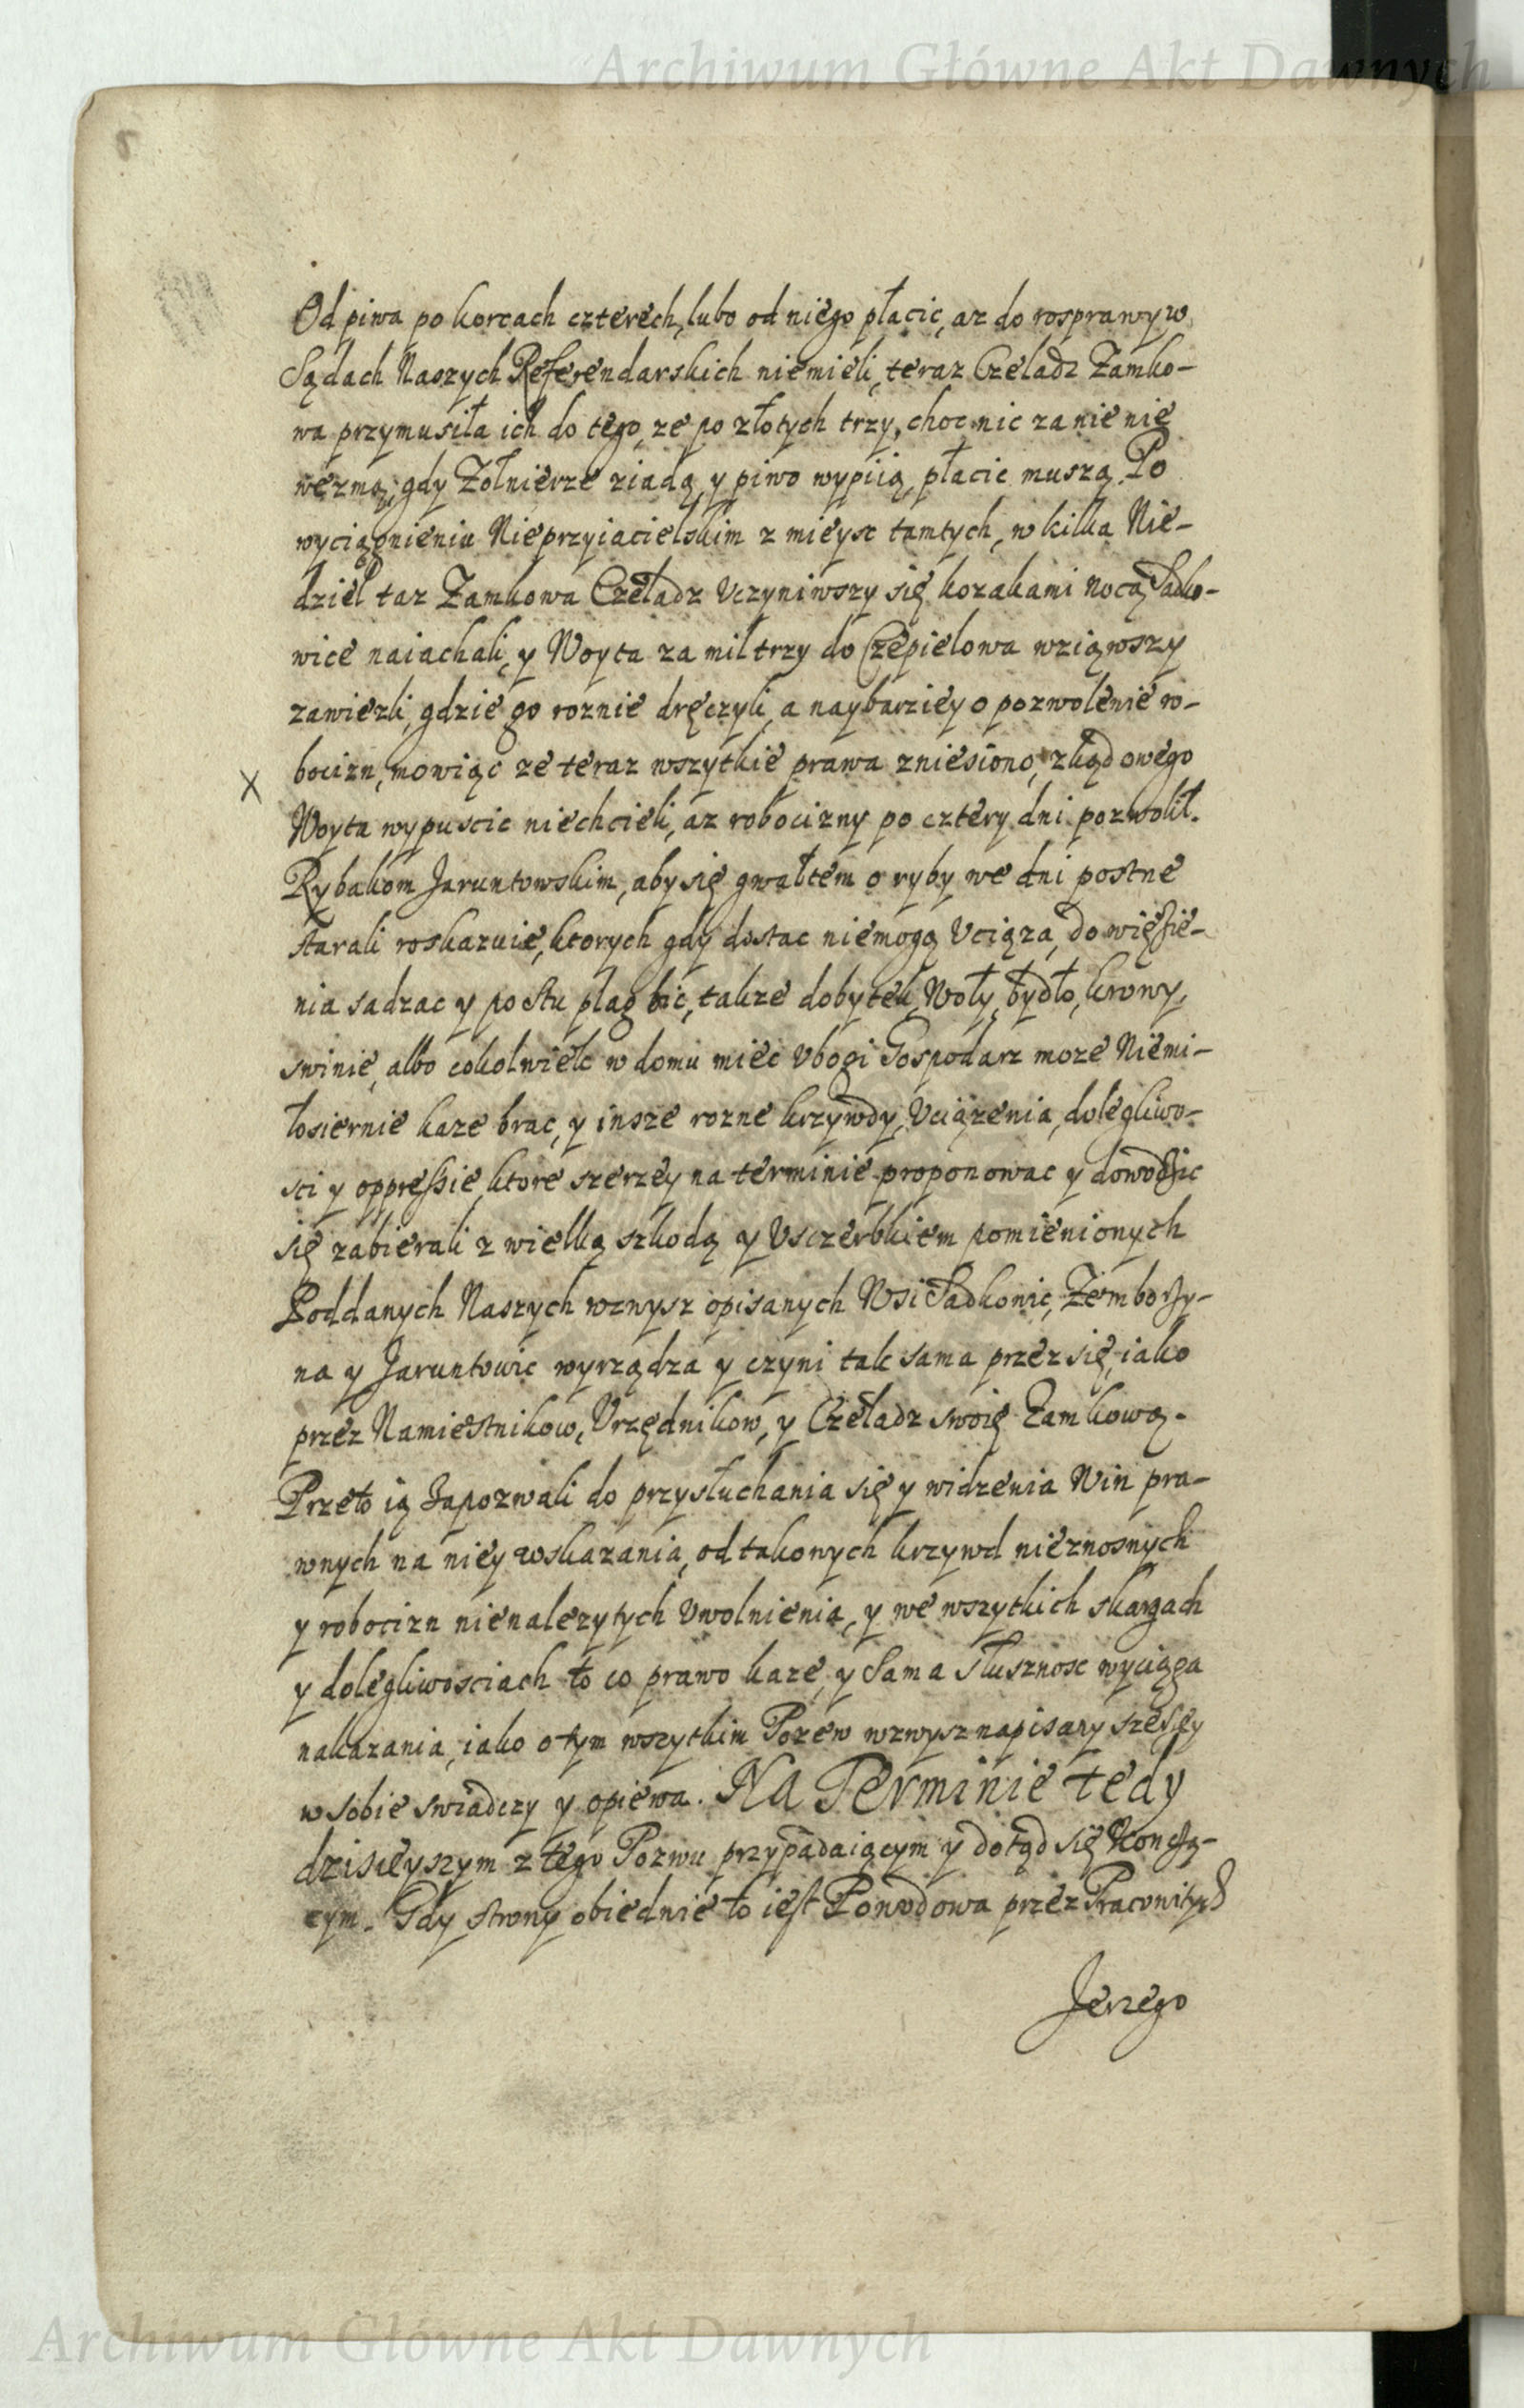 Archiwum Główne Akt Dawnych
Od piwa po korcach czterech, lubo od niego płacic, az do rosprawy w
Sądach Naszych Referendarskich niemieli, teraz Czeladz Zamko-
wa przymusiła ich do tego, ze po złotych trzy, choc nic za nie nie
wezmą, gdy Zołnierze ziadą y piwo wypiią, płacic muszą. Po
wyciągnieniu Nieprzyiacielskim z mieysc tamtych, w kilka Nie-
dziel taz Zamkowa Czeladz Vczyniwszy się kozakami nocą Sadko-
wice naiachali, y Woyta za mil trzy do Czepielowa wziąwszy
zawiezli, gdzie go roznie dręczyli, a naybarziey o pozwolenie ro-
X bocizn, mowiąc ze teraz wszytkie prawa zniesiono, zkąd owego
Woyta wypuscic niechcieli, az robocizny po cztery dni pozwolił.
Rybakom Jaruntowskim, aby się gwałtem o ryby we dni postne
starali roskazuie, ktorych gdy dostac niemogą Vciąza, do więsie-
nia sadzac y po stu plag bic, takze dobytek, Woły, bydło, krowy,
swinie, albo cokolwiek w domu miec Vbogi Gospodarz moze Niemi-
łosiernie kaze brac, y insze rozne krzywdy, Vciązenia, dolegliwo-
sci y oppressie, ktore szerzey na terminie proponowac y dowodzic
się zabierali z wielką szkodą y Vsczerbkiem pomienionych
Poddanych Naszych wznysz opisanych Wsi Sadkowic, Zemborzy-
na y Jaruntowic wyrządza y czyni tak sama przez się, iako
przez Namiestnikow, Vrzędnikow, y Czeladz swoię Zamkową.
Przeto ią Zapozwali do przysłuchania się y widzenia Win pra-
wnych na niey wskazania, od takowych krzywd nieznosnych
y robocizn nienalezytych Vwolnienia, y we wszytkich skargach
y dolegliwosciach to co prawo kaze, y Sama słusznosc wyciąga
nakazania, iako o tym wszytkim Pozew wzwysz napisany szerzey
w sobie swiadczy y opiewa. Na Terminie tedy
dzisieyszym z tego Pozwu przypadaiącym y dotąd się
cym. Gdy strony obiednie to iest Powodowa przez Pracowitych
Jerzego
Archiwum Główne Akt Dawnych